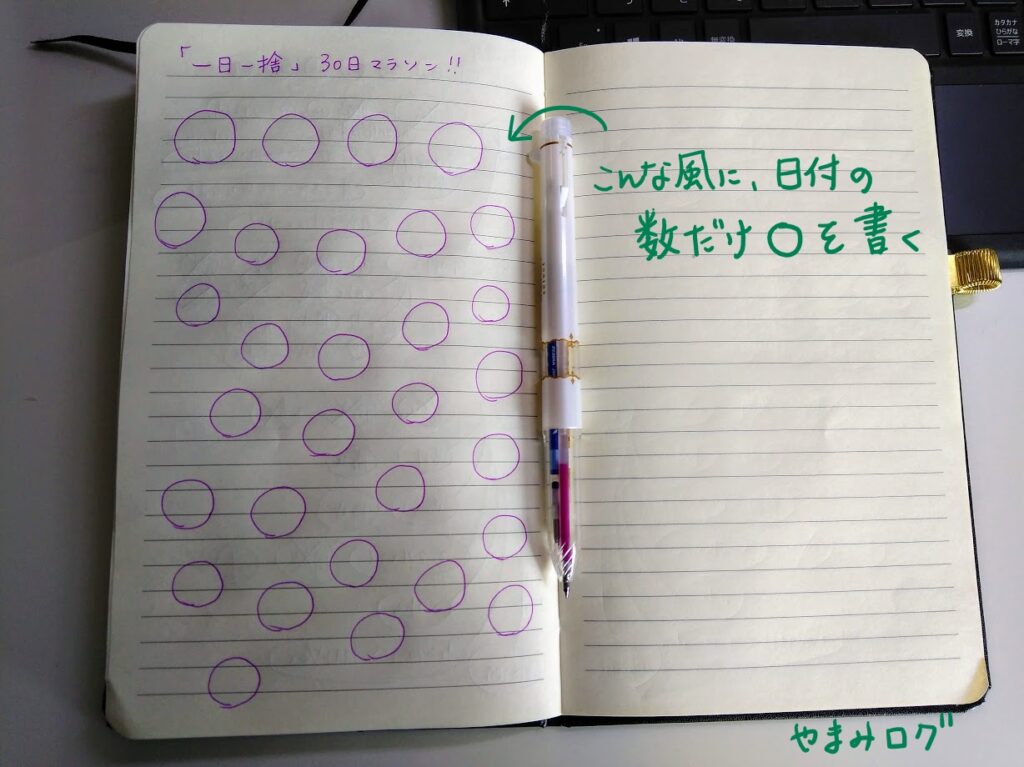 「一日一捨」30日マラソン!!
こんな風に、日付の
数だけ〇を書く
やまみログ
変換
カタカナ
ひらがな
ローマ字